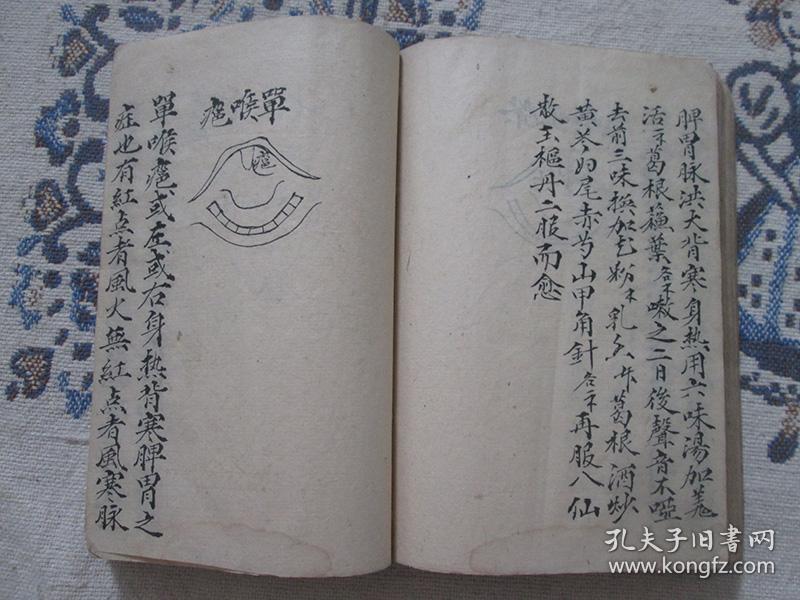 脾胃脉洪大背寒身熱用六味湯加羗
活 葛根蘓葉 漱之二日後聲音不啞
去前三味換加花粉 乳 葛根酒炒
黄芩归尾赤芍山甲角針 再服八仙
散玉樞丹二服而愈
單喉痷
單喉痷或左或右身热背寒脾胃之
症也有紅点者風火無紅点者風寒脉
孔夫子旧书网
www.kongfz.com